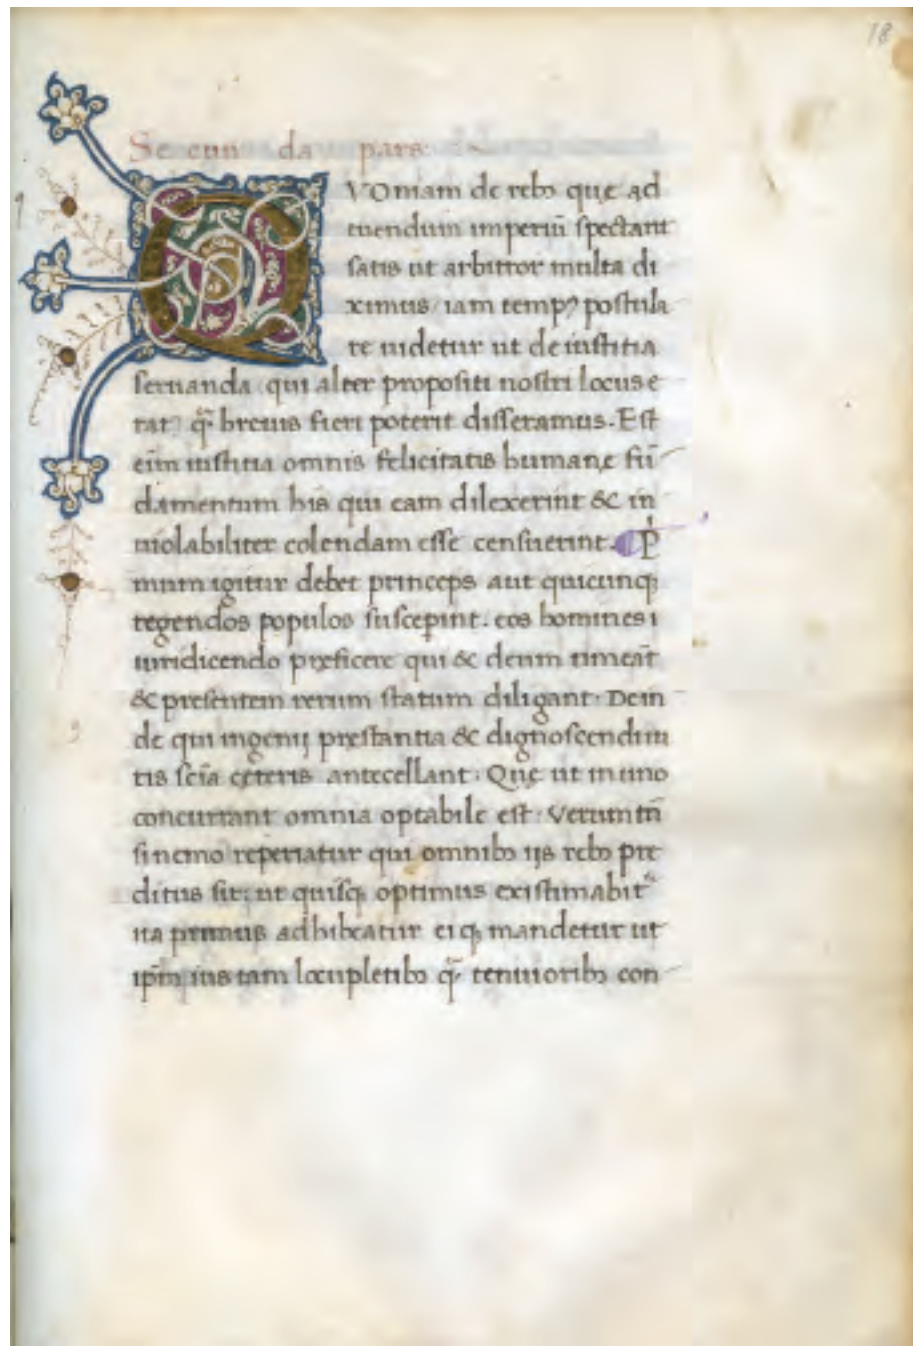 18
Secunda pars
QVOniam de rebꝫ quę ad
tuendum imperiū spectant
satis ut arbitror multa di
ximus / iam tempꝰ postula
re uidetur ut de iustitia
seruanda qui alter propositi nostri locus e
rat q̄ breuis fieri poterit disseramus. Est
eīm iustitia omnis felicitatis humanę fū
damentum his qui eam dilexerint & in
uiolabiliter colendam esse censuerint. P
mum igitur debet princeps aut quicunqꝫ
regendos populos suscepint. eos homines i
iuridicendo pręficere qui & deum timeāt
& presentem rerum statum diligant. Dein
de qui ingenij prestantia & dignoscendiui
tis scīa ceteris antecellant. Quę ut in uno
concurrant omnia optabile est. Verum tn̄
si nemo reperiatur qui omnibꝫ ijs rebꝫ pre
ditus sit: ut quisqꝫ optimus existimabit᷑
ita primus adhibeatur eiqꝫ mandetur ut
ip̄m ius tam locupletibꝫ q̄ tenuioribꝫ con